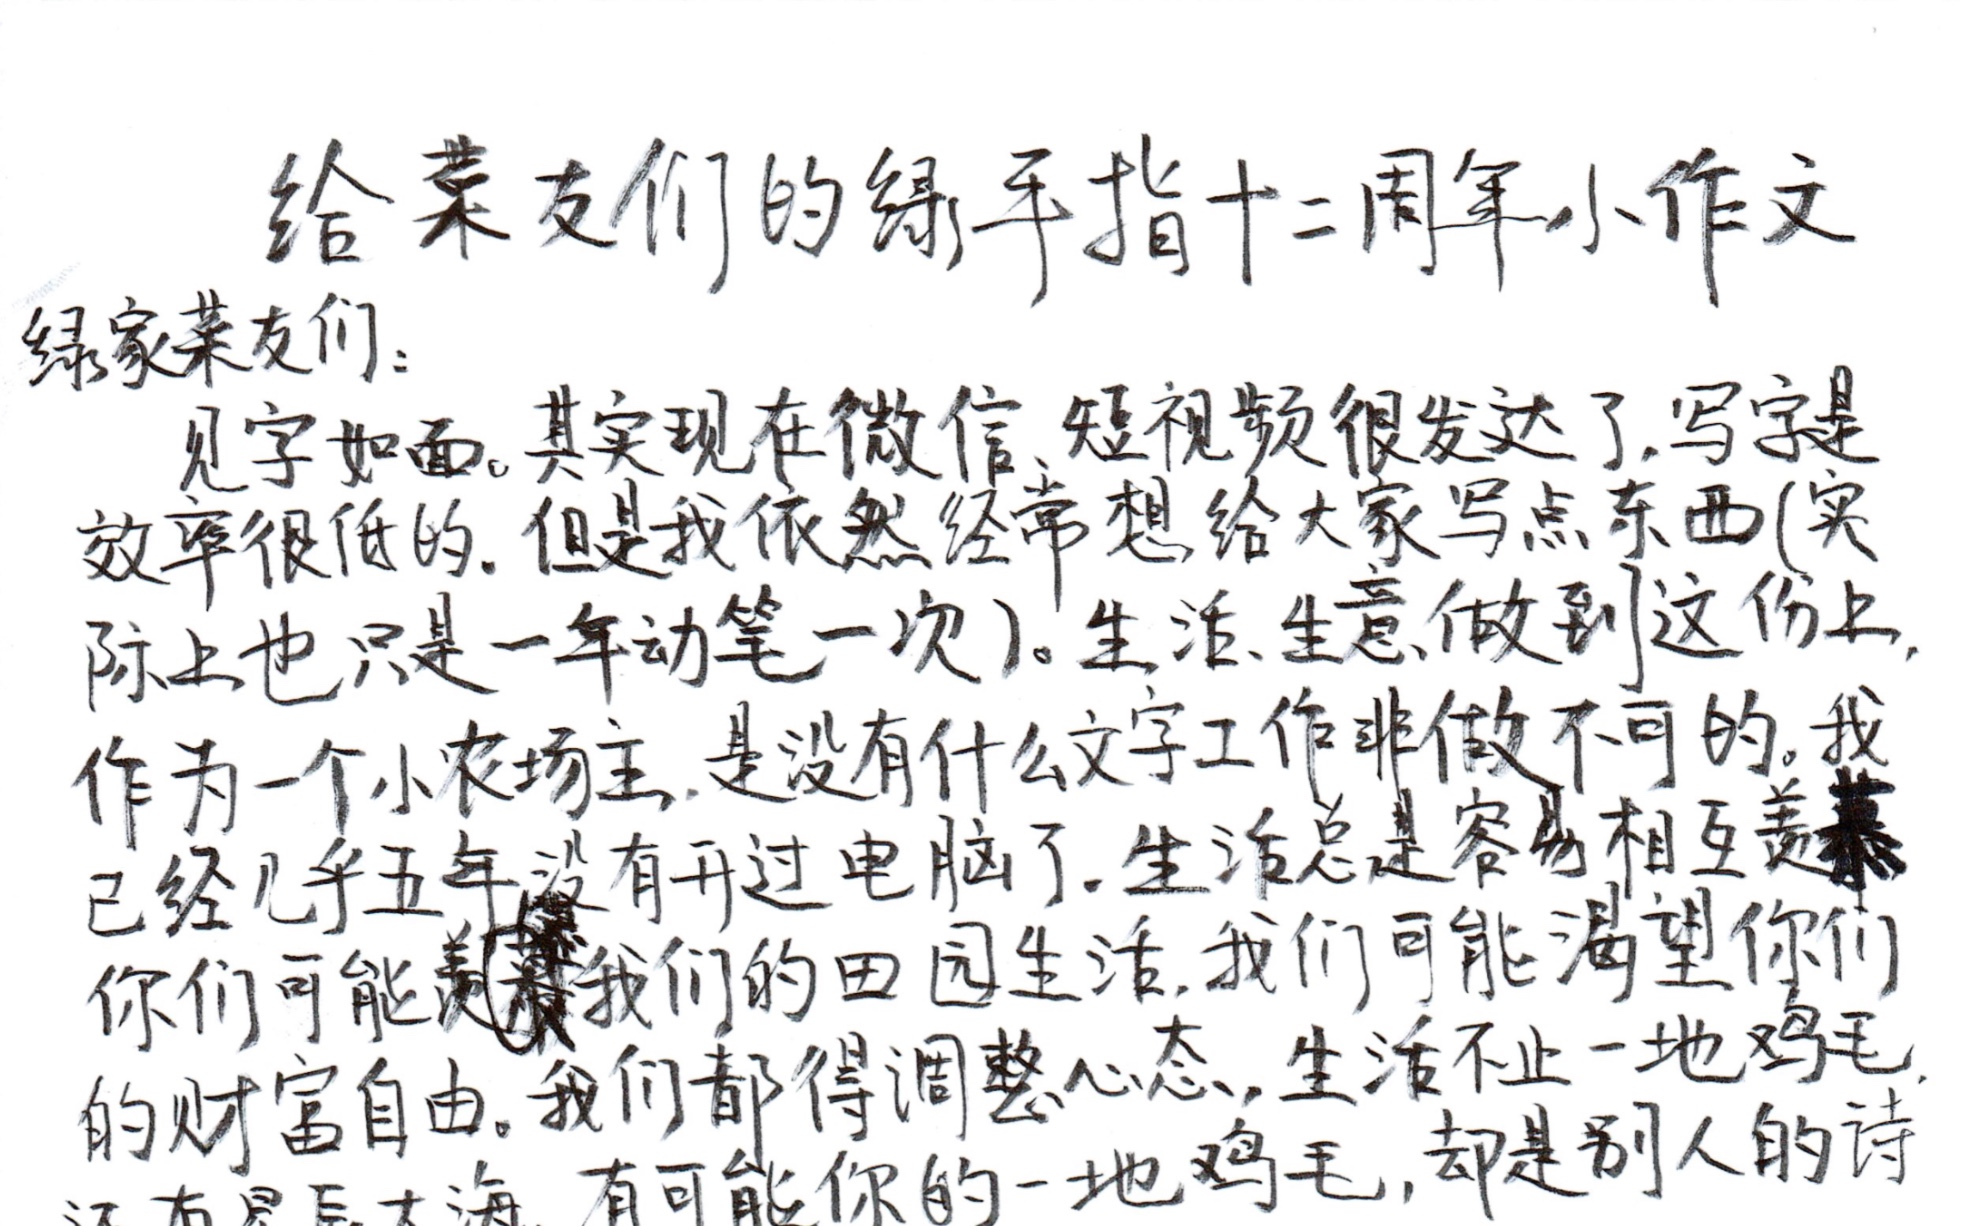 给菜友们的绿手指十二周年小作文
绿家菜友们：
见字如面。其实现在微信、短视频很发达了，写字是
效率很低的。但是我依然经常想给大家写点东西(实
际上也只是一年动笔一次)。生活、生意、做到这份上，
作为一个小农场主，是没有什么文字工作非做不可的。我
已经几乎五年没有开过电脑了。生活总是容易相互羡慕
你们可能羡慕我们的田园生活，我们可能渴望你们
的财富自由。我们都得调整心态，生活不止一地鸡毛，
还有星辰大海，有可能你的一地鸡毛，却是别人的诗